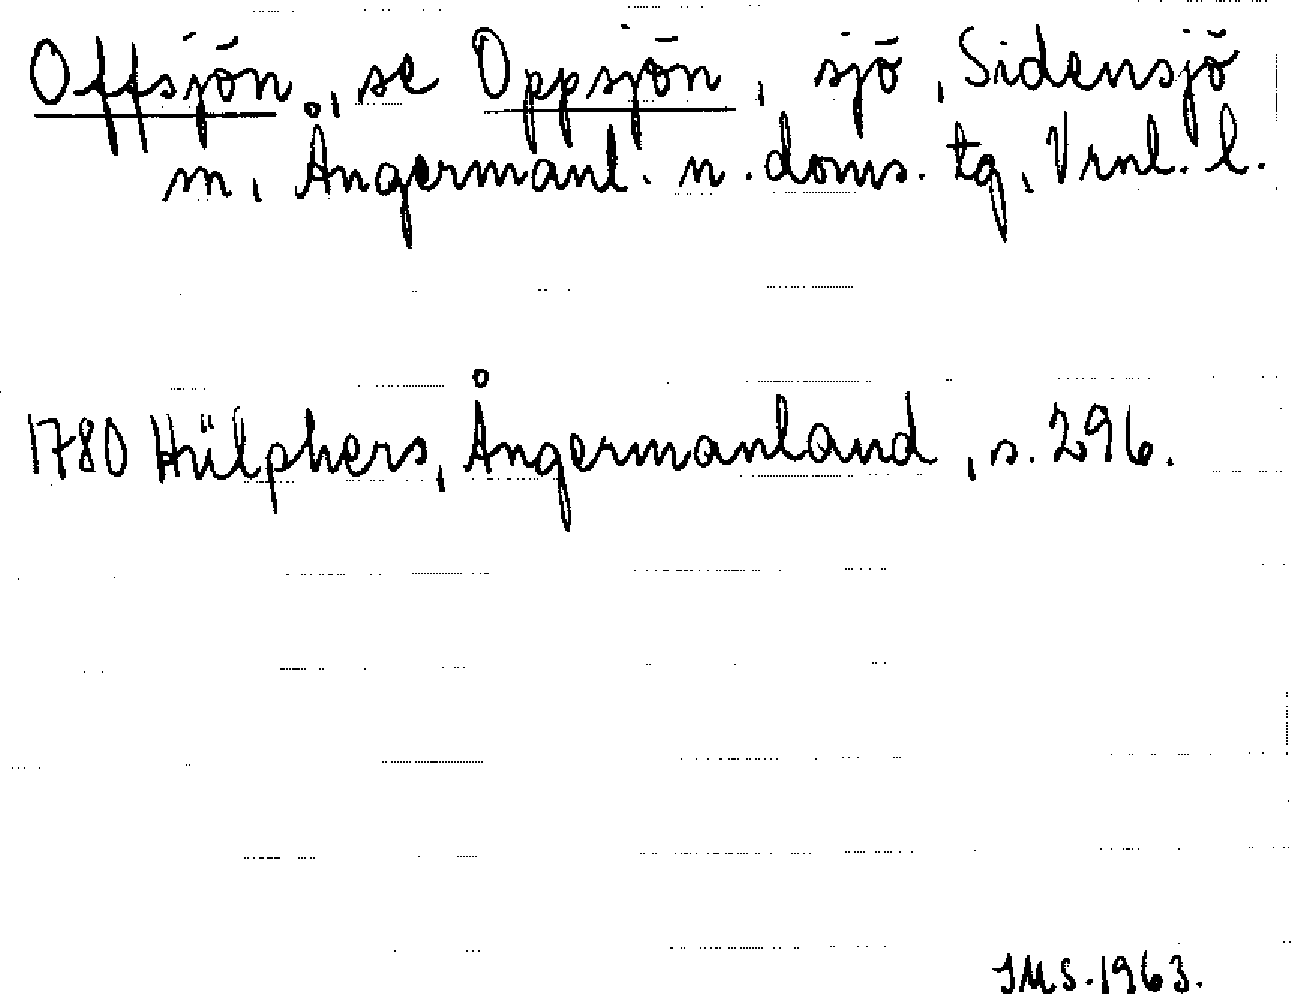 Offsjön, se Oppsjön, sjö, Sidensjö
m, Ångermanl. n. doms. tg, Vrnl. l.
1780 Hülphers, Ångermanland, s. 296.
JMS. 1963.